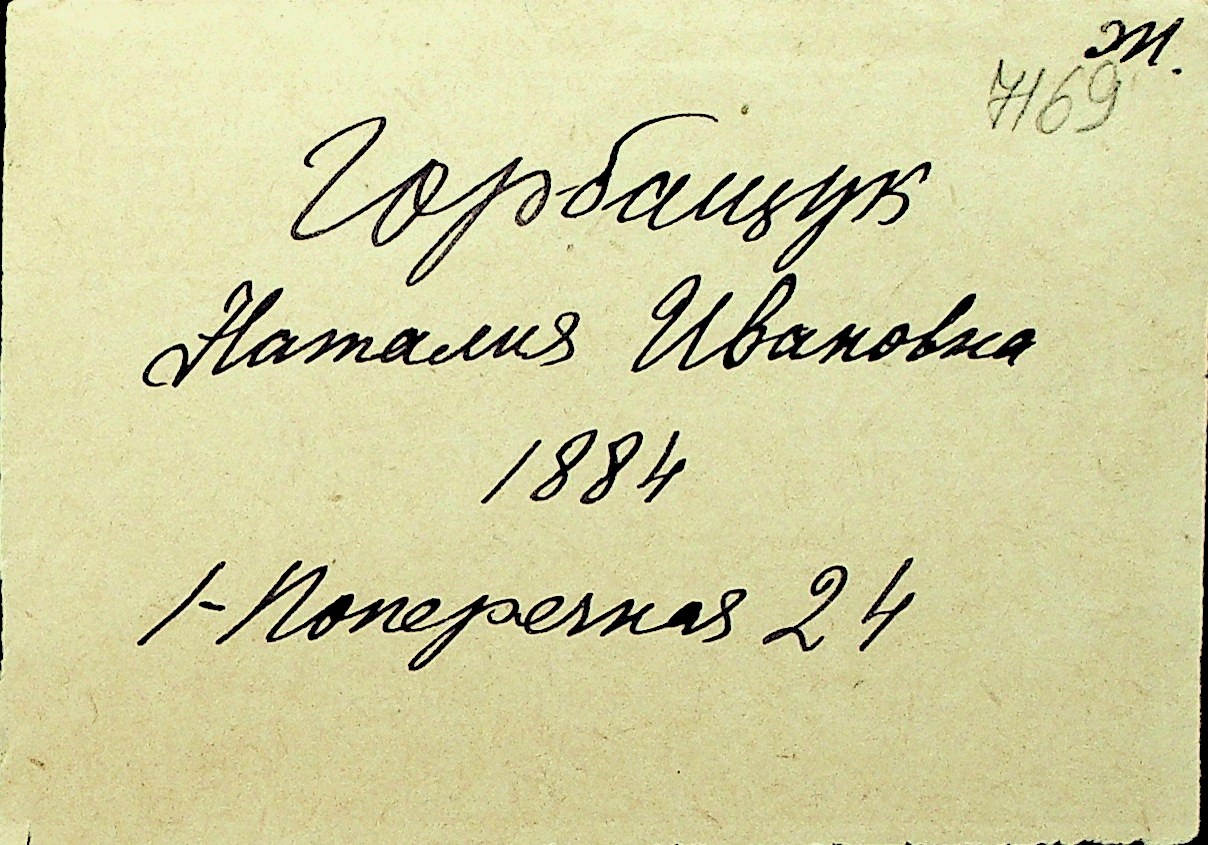 Ж.
7169
Горбащук
Наталия Ивановна
1884
1-Поперечная 24